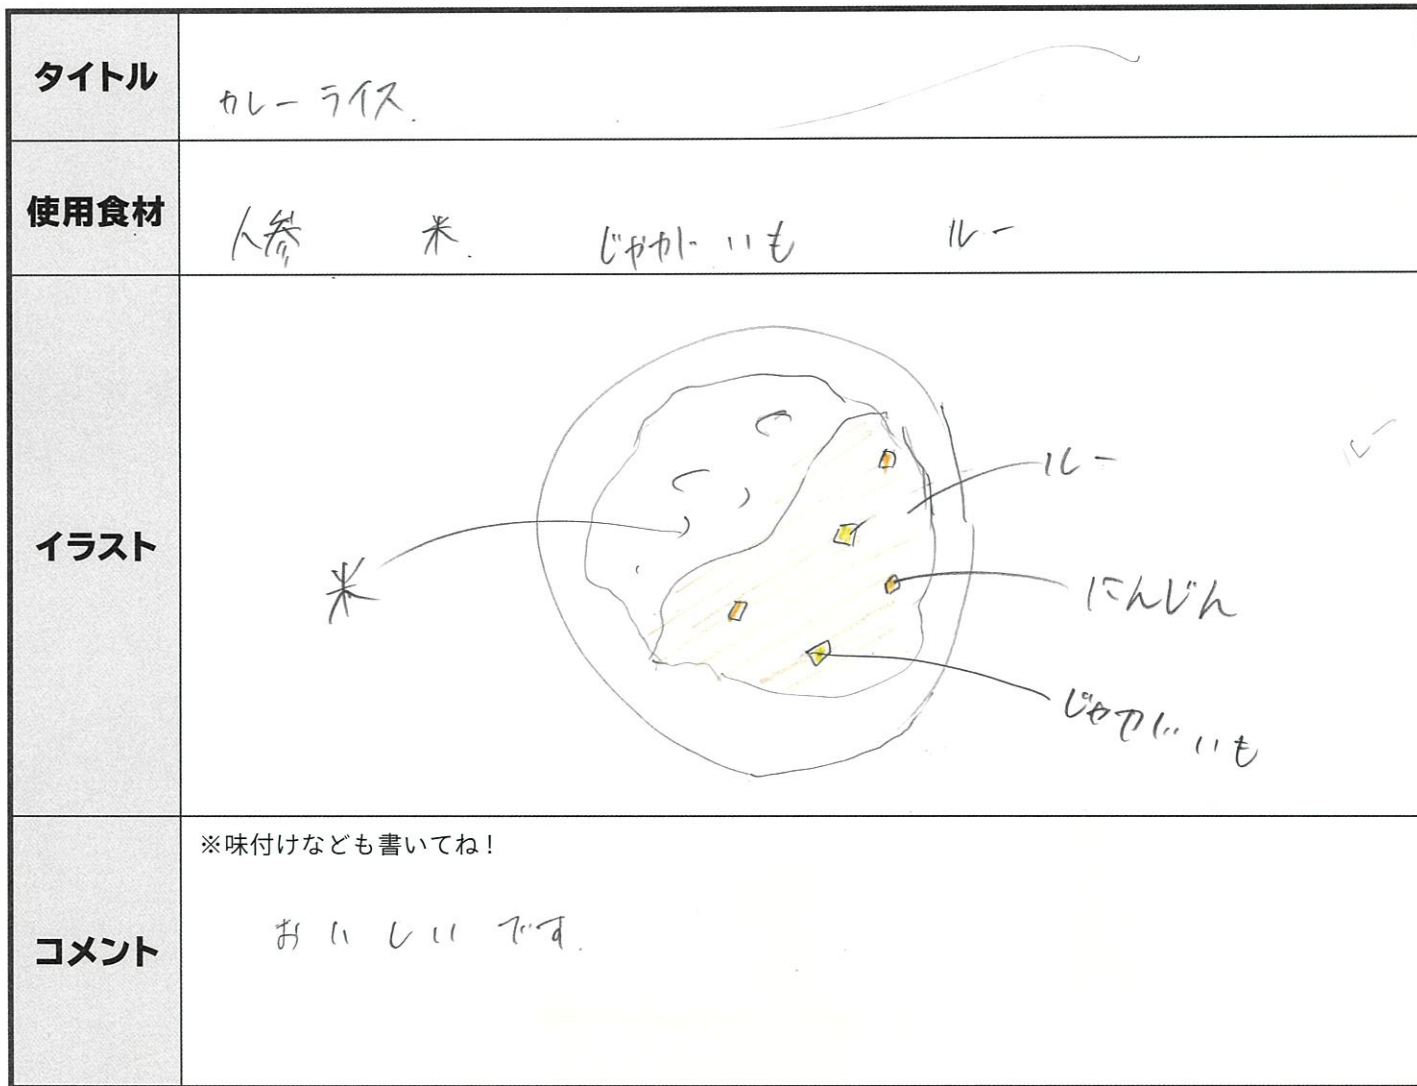 タイトル
カレーライス.
使用食材
人参 米. じゃがいも ルー
イラスト
ルー
米
にんじん
じゃがいも
コメント
※味付けなども書いてね！
おいしいです.